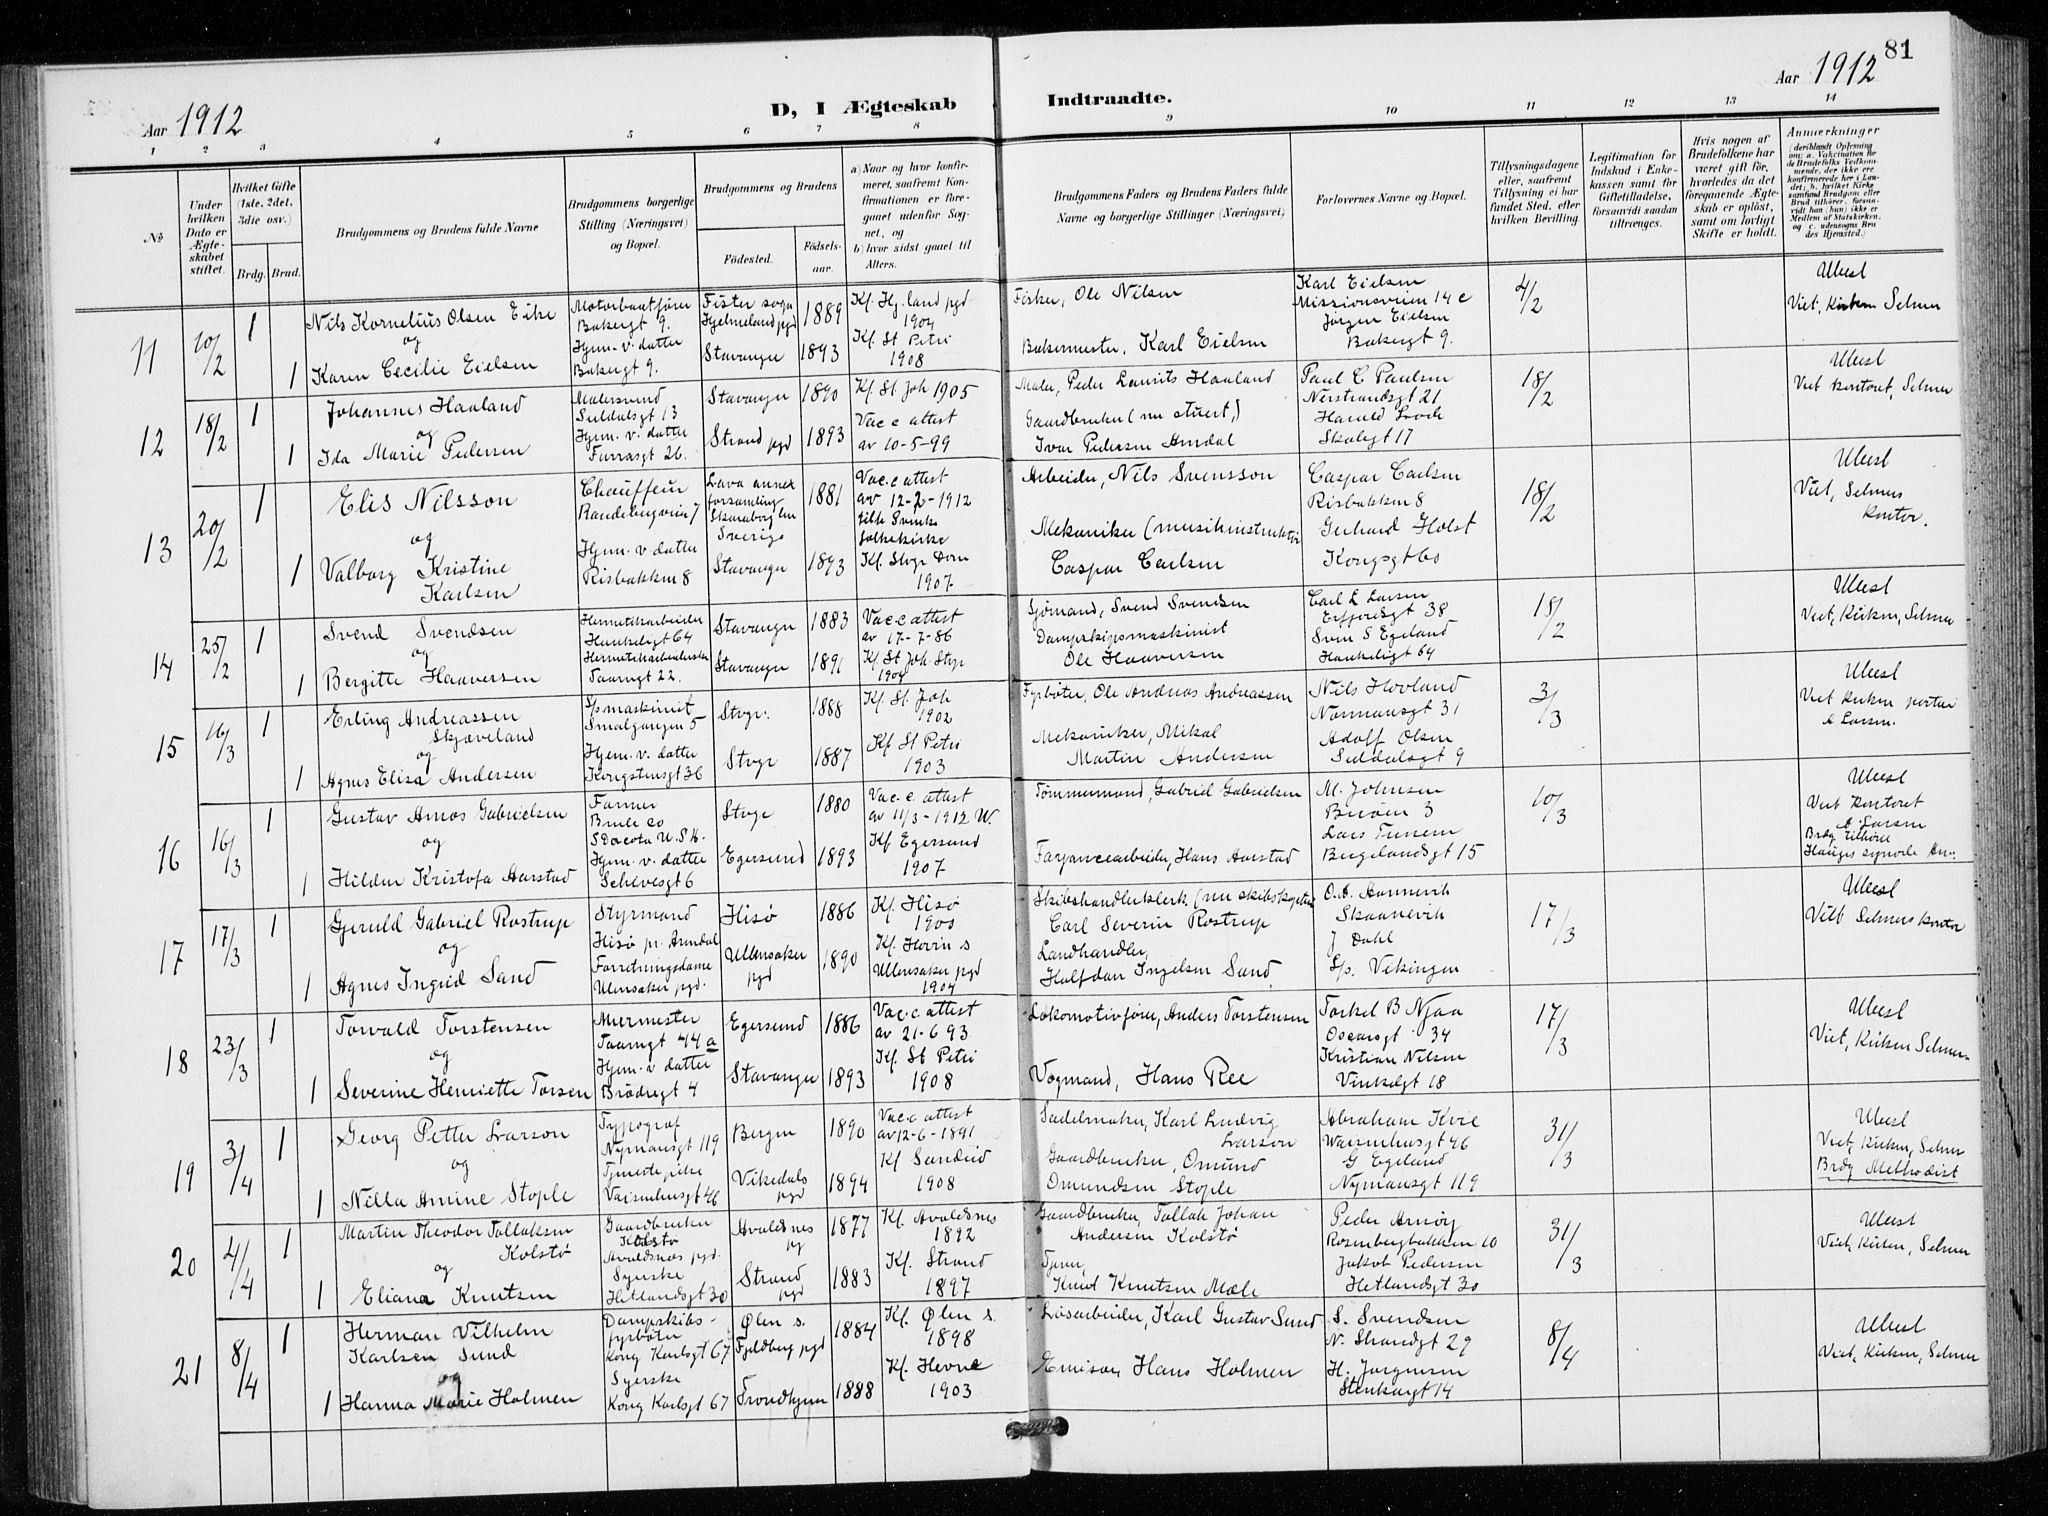 81
Aar 1912
D, I Ægteskab
Indtraadte.
Aar 1912
1 2 3 4 5 6 7 8 9 10 11 12 13 14
No
Under hvilken Dato er Ægteskabet stiftet.
Hvilket Gifte (1ste, 2det, 3die osv.)
Brdg. Brud.
Brudgommens og Brudens fulde Navne
Brudgommens borgerlige Stilling (Næringsvei) og Bopæl.
Brudgommens og Brudens
Födested.
Födselsaar.
a) Naar og hvor konfirmeret, saafremt Konfirmationen er foregaaet udenfor Sognet, og
b) hvor sidst gaaet til Alters.
Brudgommens Faders og Brudens Faders fulde Navne og borgerlige Stillinger (Næringsvei)
Forlovernes Navne og Bopæl.
Tillysningsdagene eller, saafremt Tillysning ei har fundet Sted, efter hvilken Bevilling.
Legitimation for Indskud i Enkekassen samt for Giftetilladelse, forsaavidt saadan tiltrænges.
Hvis nogen af Brudefolkene har været gift för, hvorledes da det foregaaende Ægteskab er oplöst, samt om lovligt Skifte er holdt.
Anmærkninger
11
10/2
1
Nils Kornelius Olsen Eike
og
1
Karen Cecilie Eielsen
Motorbaatfører
Bakergt 9.
Hjem. v. datter
Bakergt 9.
Fister sogn
Hjelmeland pgd
Stavanger
1889
1893
Kf. Hj.land pgd
1904
Kf. St Petri
1908
Fisker, Ole Nilsen
Bakermester, Karl Eielsen
Karl Eielsen
Missionsveien 14 c
Jørgen Eielsen
Bakergt 9.
4/2
Ubesl
Viet, Kirken Selmer
12
18/2
1
Johannes Haaland
og
1
Ida Marie Pedersen
Malersvend
Suldalsgt 13
Hjem. v. datter
Furrasgt 26.
Stavanger
Strand pgd
1890
1893
Kf. St Joh 1905
Vac c attest
av 10-5-99
Maler, Peder Laurits Haaland
Gaardbruker (nu stuert,)
Ivar Pedersen Amdal
Paul C Paulsen
Nerstrandsgt 21
Harald Lode
Skolegt 17
18/2
Ubesl
Viet kontoret, Selmer
13
20/2
1
Elis Nilsson
og
1
Valborg Kristine
Karlsen
Chauffeur
Randebergveien 7
Hjem. v. datter
Risbakken 8
Lava annex
forsamling
Skaraborg len
Sverige
Stavanger
1881
1893
Vac.c attest
av 12-2-1912
tilh Svenske
folkekirke
Kf. Stvgr Dom
1907
Arbeider, Nils Svensson
Mekaniker (musikinstruktør
Caspar Carlsen
Caspar Carlsen
Risbakken 8
Gerhard Holst
Kongsgt 60
18/2
Ubesl
Viet, Selmers
kontor.
14
25/2
1
Svend Svendsen
og
1
Bergitte Haaversen
Hermetikarbeider
Haukeligt 64
Hermetikarbeiderske
Taarngt 22.
Stavanger
Stavanger
1883
1891
Vac c attest
av 17-7-86
Kf. St Joh Stvgr
Sjømand, Svend Svendsen
Dampskipsmaskinist
Ole Haaversen
Carl L Larsen
Erfjordsgt 38
Sven S Egeland
Haukeligt 64
18/2
Ubesl
Viet, Kirken, Selmer
15
16/3
1
Erling Andreassen
Skjæveland
og
1
Agnes Eliza Andersen
S/s maskinist
Smalgangen 5
Hjem. v. datter
Kongstensgt 36
Stvgr.
Stvgr
1888
1887
Kf. St Joh
1902
Kf St Petri
1903
Fyrbøter, Ole Andreas Andreassen
Mekaniker, Mikal
Martin Andersen
Nils Hovland
Normansgt 31
Adolf Olsen
Suldalsgt 9
3/3
Ubesl
Viet kirken
A Larsen.
16
16/3
1
Gustav Amos Gabrielsen
og
1
Hilda Kristofa Aarstad
Farmer
Brule co
S Dacota U.S.A.
Hjem. v. datter
Schivesgt 6
Stvgr
Egersund
1880
1893
Vac. c. attest
av 11/3-1912 W.
Kf Egersund
1907
Tømmermand, Gabriel Gabrielsen
Fajancearbeider, Hans Aarstad
M. Johnsen
Lars Tunem
Bergelandsgt 15
10/3
Ubesl
Viet kontoret
A. Larsen
Brdg tilhører
Hauges synode
17
17/3
1
Gjeruld Gabriel Rostrup
og
1
Agnes Ingrid Sand
Styrmand
Hisø pr. Arendal
Forretningsdame
Ullensaker pgd.
Hisø
Ullensaker
pgd
1886
1890
Kf. Hisø
1900
Kf. Hovin s
Ullensaker pgd
1904
Skibshandlerklerk (nu skibskaptein
Carl Severin Rostrup
Landhandler,
Halfdan Ingelsen Sand.
O.A. Aannevik
Skaanevik
J Dahl
S/s. Vikingen
17/3
Ubesl
Viet Selmers kontor
18
23/3
1
Torvald Torstensen
og
1
Severine Henriette Torsen
Murmester
Taarngt 44 a
Hjem. v datter
Brødregt 4
Egersund
Stavanger
1886
1893
Vac.c attest
av 21-6 93
Kf. St Petri
1908
Lokomotivfører, Anders Torstensen
Vogmand, Hans Ree
Torkel B Njaa
Oscarsgt 34
Kristian Nilsen
Vinkelgt 18
17/3
Ubesl
Viet, Kirken Selmer
19
3/4
1
Georg Petter Larson
og
1
Nilla Amine Stople
Typograf
Nymansgt 119
Tjenestepike
Vaisenhusgt 46
Bergen
Vikedals
pgd
1890
1894
Vac.c attest
av 12-6-1891
Kf Sandeid
1908
Sadelmaker, Karl Ludvig
Larson
Gaardbruker, Omund
Omundsen Stople
Abraham Kvie
Waisenhusgt 46
G Egeland
Nymansgt 119
31/3
Ubesl
Viet, Kirken, Selmer
Brdg Methodist
20
4/4
1
Martin Theodor Tallaksen
Kolstø
og
1
Eliana Knutsen
Gaardbruker
Kolstø
Avaldsnes pgd.
Syerske
Hetlandsgt 30
Avaldsnes
pg
Strand
pgd
1877
1883
Kf. Avaldsnes
1892
Kf. Strand
1897
Gaardbruker, Tallak Johan
Andersen Kolstø
Knut Knutsen Mæle
Peder Amøy
Rosenbergbakken 10
Jakob Pedersen
Hetlandsgt 30
31/3
Ubesl
Viet, Kirken, Selmer
21
8/4
1
Herman Vilhelm
Karlsen Sund
og
1
Hanna Marie Holmen
Dampskibs-
fyrbøter
Kong Karlsgt 67
Syerske
Kong Karlsgt 67
Ølen s.
Fjeldberg pgd
Trondhjem
1884
1888
Kf. Ølen s.
1898
Kf. Hevne
1903
Løsarbeider, Karl Gustav Sund
Emisær, Hans Holmen
S. Svendsen
N. Strandgt 29
H. Jørgensen
Stenkargt 14
8/4
Ubesl
Viet, Kirken, Selmer